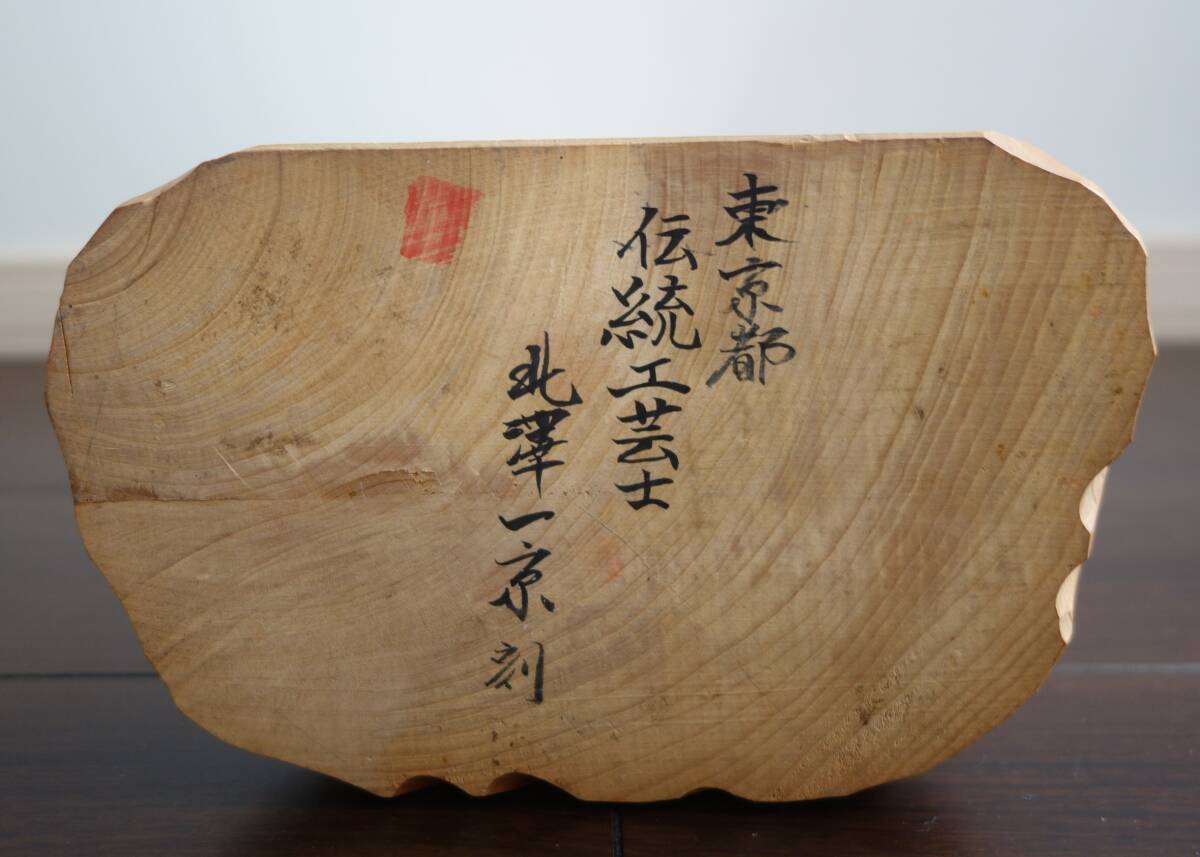 東京都
伝統工芸士
北澤一京刻